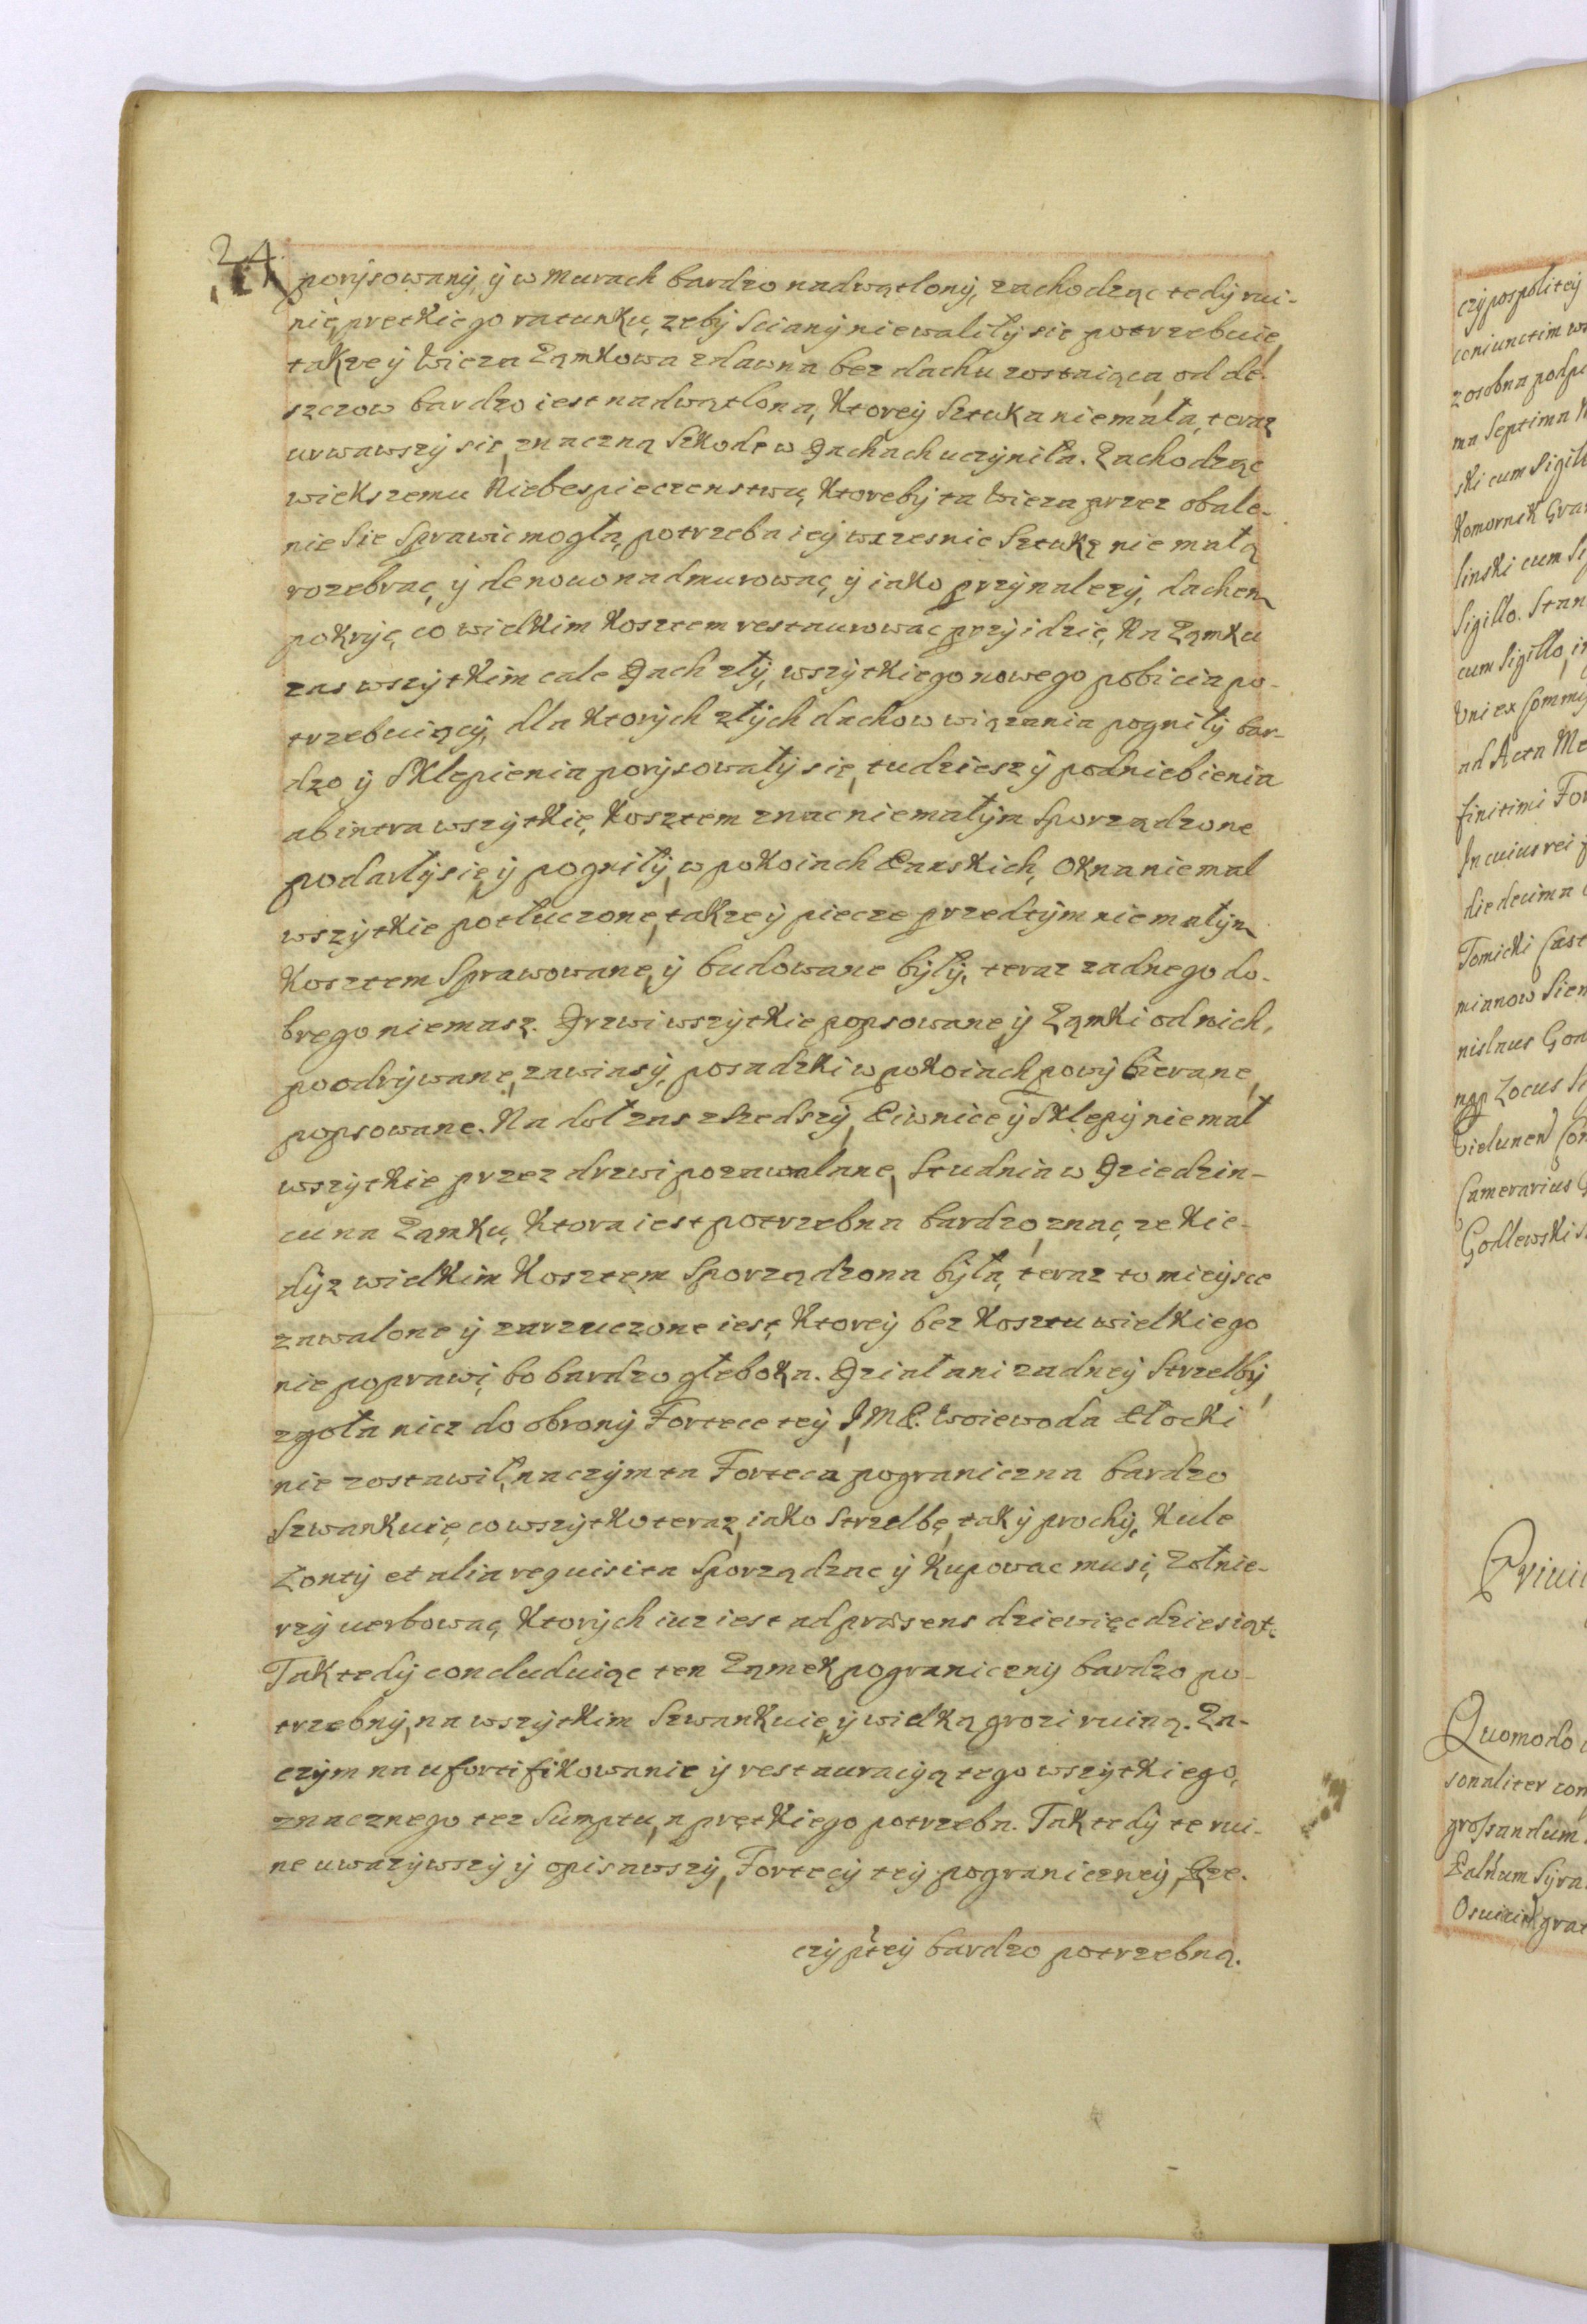 24.
porysowany, y w Murach bardzo nadwątlony, zachodząc tedy rui-
nie, prętkiego ratunku, zeby Sciany niewality się potrzebuie,
takze y Wieza Zamkowa zdawna bez dachu zostaiąca, od de-
szczow bardzo iest nadwątlona, Ktorey Sztuka niemała, teraz
urwawszy się, znaczną Szkodę w Dachach uczyniła. Zachodząc
wiekszemu Niebespieczenstwu, Ktoreby ta Wieza przez obale-
nie Sie Sprawic mogła, potrzeba iey wczesnie Sztukę nie małą
rozebrac, y de nouo nadmurowac, y iako przynalezy, dachem
pokryc, co wielkim Kosztem restaurowac przyidzie, Na Zamku
zas wszytkim cale Dach zły, wszytkiego nowego pobicia po-
trzebuiący, dla Ktorych złych dachow wiązania pogniły bar-
dzo y Sklepienia porysowały się, tudziesz y podniebienia
ab intra wszytkie, Kosztem znac niemałym Sporządzone
podarły się, y pogniły, w pokoiach Panskich, Okna niemal
wszytkie potłuczone, takze y piecze przedtym niemałym
Kosztem Sprawowane, y budowane były, teraz zadnego do-
brego niemasz. Drzwi wszytkie popsowane, y Zamki od nich,
poodrywane, zawiasy, posadzki w pokoiach powybierane,
popsowane. Na doł zas zszedszy, Piwnice y Sklepy niemal
wszytkie przez drzwi pozawalane, Studnia w Dziedzin-
cu na Zamku, Ktora iest potrzebna bardzo, znac, ze Kie-
dyz wielkim Kosztem Sporządzona była, teraz to mieysce
zawalone y zarzuczone iest, Ktorey bez Kosztu wielkiego
nie poprawi, bo bardzo głeboka. Dział ani zadney Strzelby,
zgoła nicz do obrony Fortece tey, J M P. Woiewoda Płocki
nie zostawił, na czym ta Forteca pograniczna bardzo
Szwankuie, co wszytko teraz, iako Strzelbę, tak y prochy, Kule
Lonty et alia requisita Sporządzac y Kupowac musi, Zołnie-
rzy uerbowac, Ktorych iuz iest ad præsens dziewięcdziesiąt.
Tak tedy concluduiąc ten Zamek pograniczny bardzo po-
trzebny, na wszytkim Szwankuie, y wielką grozi ruiną. Za-
czym na ufortifikowanie y restauracyą tego wszytkiego,
znacznego tez Sumptu, a prętkiego potrzeba. Tak tedy te rui-
ne uwazywszy y opisawszy, Fortecy tey pograniczney, Rze-
czyptey bardzo potrzebną.
czypospolitey
coniunctim
z osobna
ma Septima
ski cum Sigill
Komornik Gra
linski cum
Sigillo. Stan
cum Sigillo,
Vni ex
ad Acta Me
finitimi For
In cuius rei
die decima
Tomicki Cast
mianow Sien
nislaus
Locus
Vielunen
Camerarius
Godlewski
Priui
Quomodo
sonaliter con
grossandum